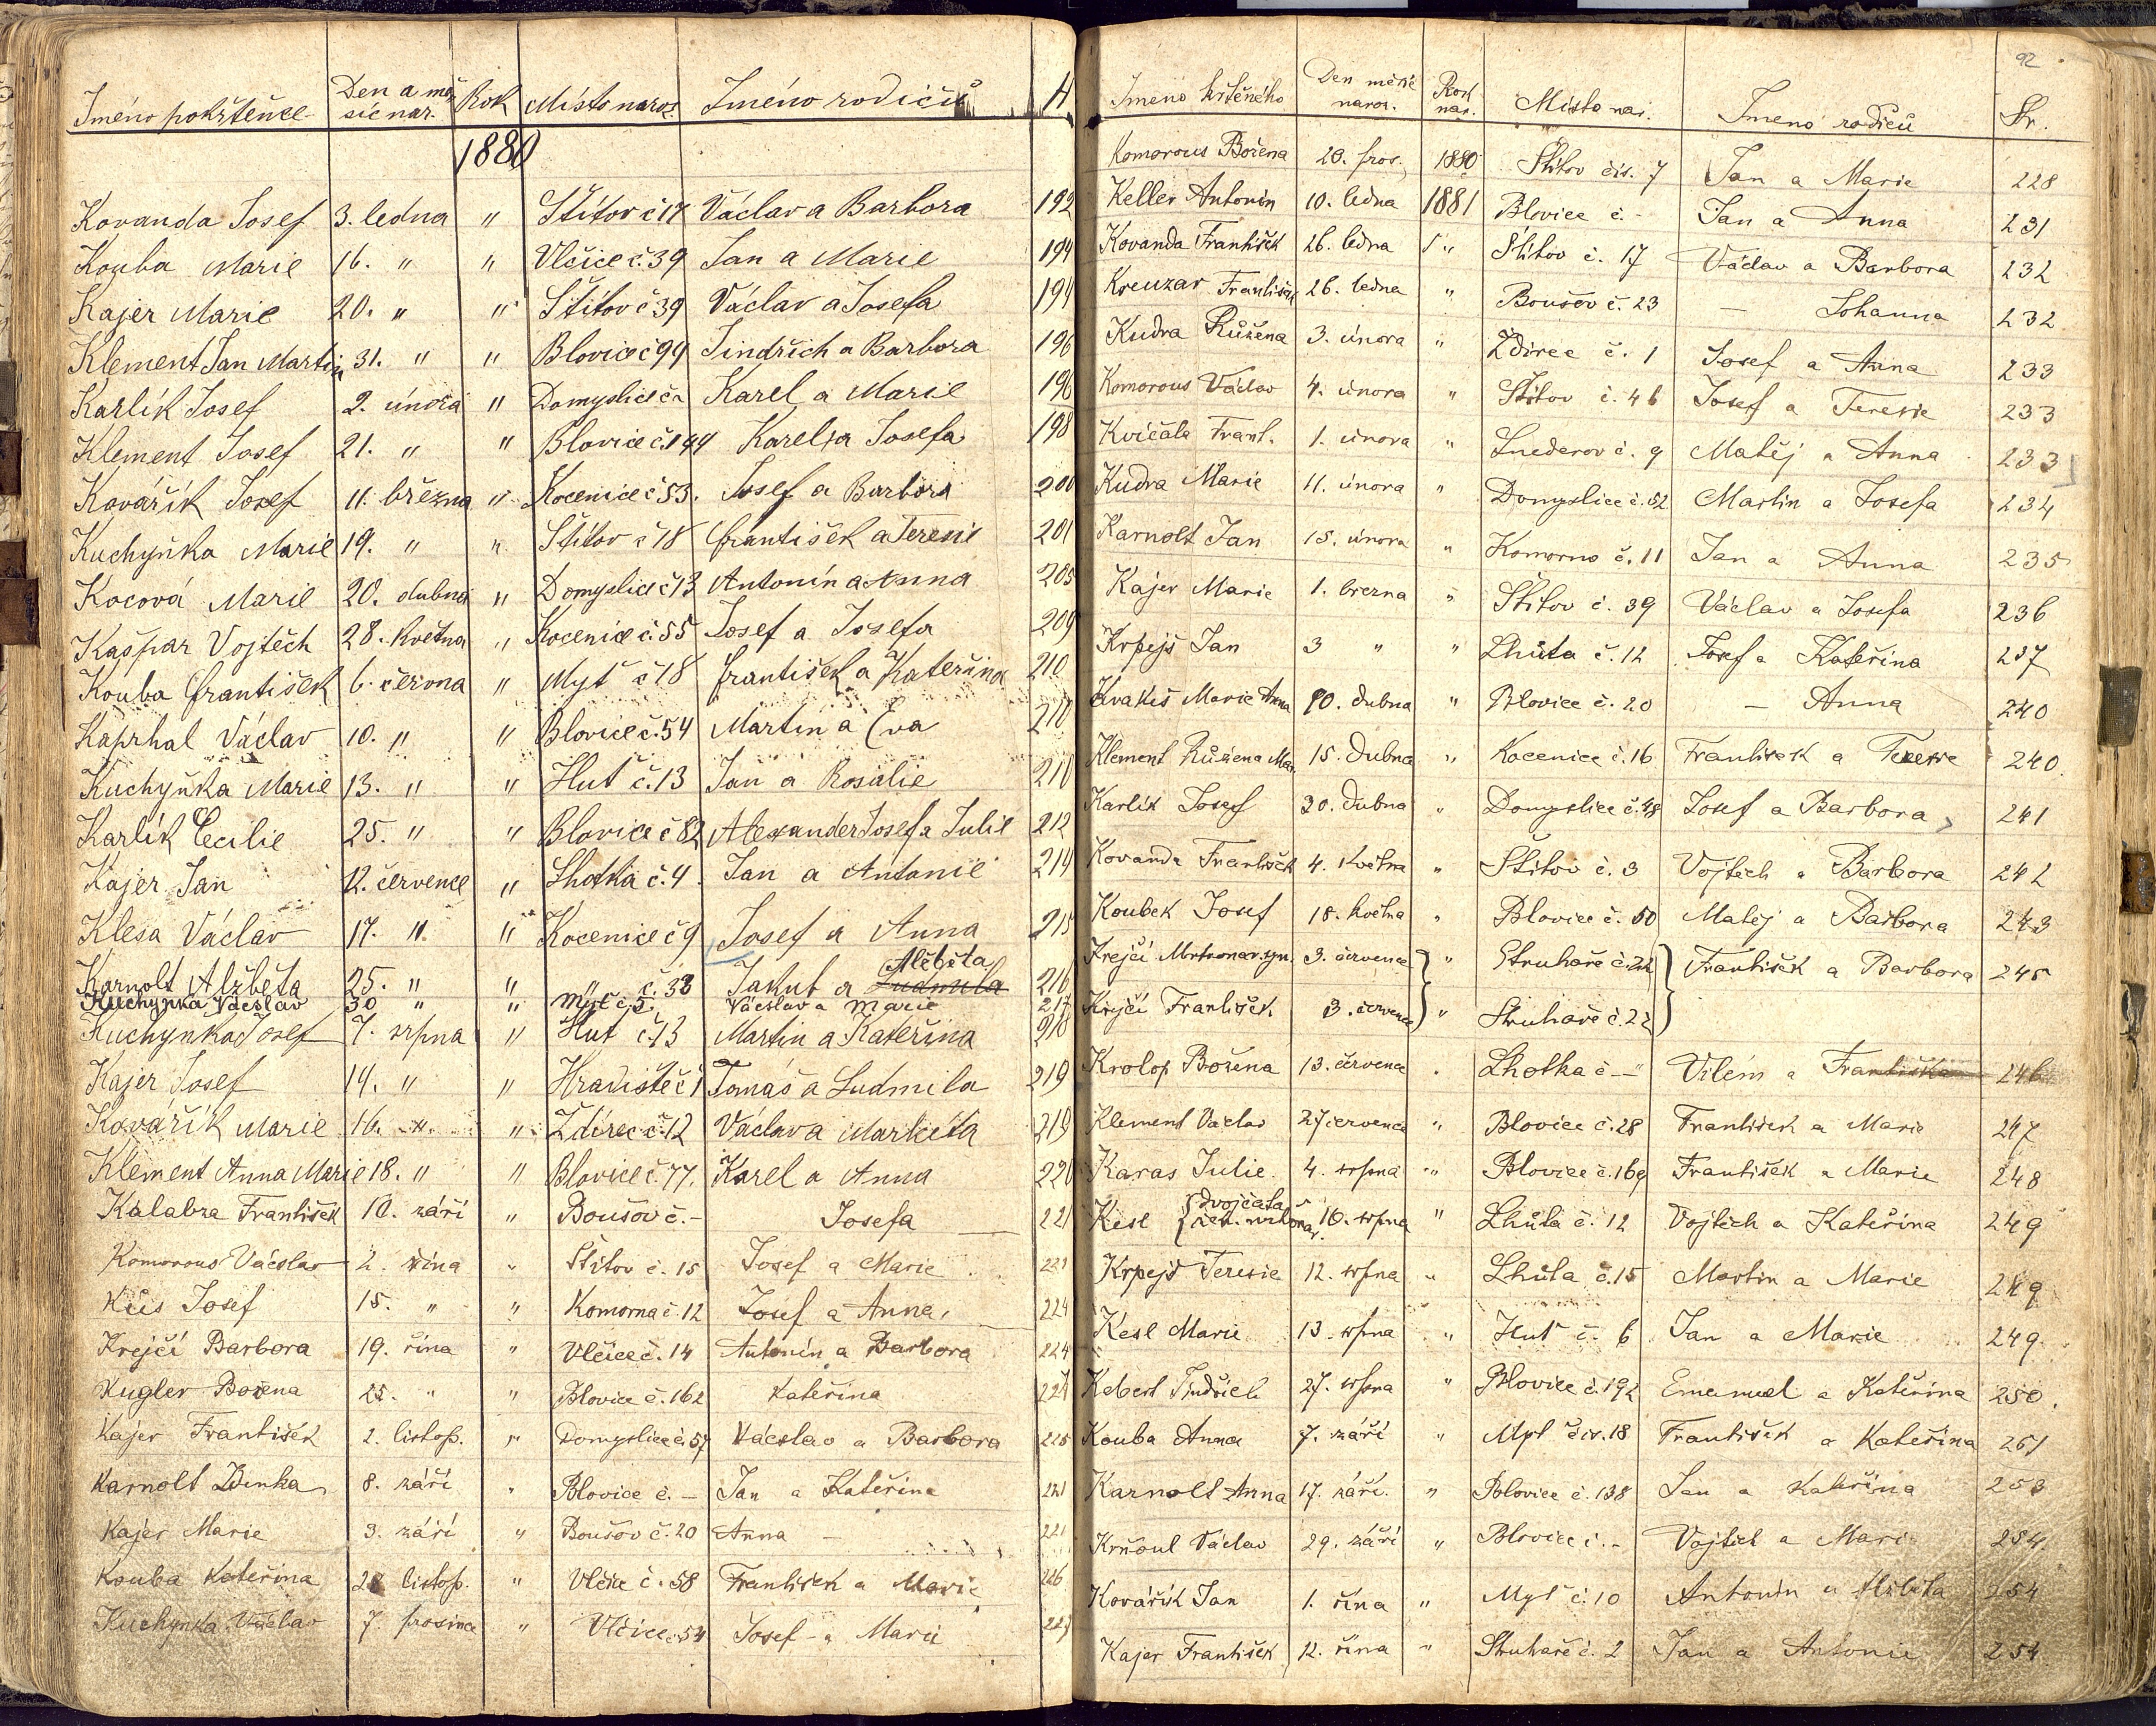 Jméno pokřtěnce Den a měsíc nar. Rok Místo naroz. Jméno rodičů
1880
Kovanda Josef 3. ledna " Štítov č 17 Václav a Barbora 192
Kouba Marie 16. " " Vlčice č. 39 Jan a Marie 194
Kajer Marie 20. " " Štítov č 39 Václav a Josefa 194
Klement Jan Martin 31. " " Blovice č 94 Jindřich a Barbora 196
Karlík Josef 2. února " Domyslice č Karel a Marie 196
Klement Josef 21. " " Blovice č. 144 Karel a Josefa 198
Kovářík Josef 11. března " Kocenice č 53. Josef a Barbora 200
Kuchyňka Marie 19. " " Štítov č 18 František a Teresie 201
Kocová Marie 20. dubna " Domyslice č 13 Antonín a Anna 205
Kašpar Vojtěch 28. května " Kocenice č. 55 Josef a Josefa 209
Kouba František 6. června " Myť č 18 František a Kateřina 210
Kaprhal Václav 10. " " Blovice č. 54 Martin a Eva 210
Kuchyňka Marie 13. " " Huť č. 13 Jan a Rosalie 210
Karlík Cecilie 25. " " Blovice č 82 Alexander Josef a Julie 212
Kajer Jan 12. července " Lhotka č. 4. Jan a Antonie 214
Klesa Václav 17. " " Kocenice č 9 Josef a Anna 215
Karnolt Alžběta 25. " " " č. 38 Jakub a Ludmila Alžběta 216
Kuchynka Václav 30 " " Myť č. 5. Václav a Marie 217
Kuchynka Josef 7. srpna " Huť č. 13 Martin a Kateřina 218
Kajer Josef 14. " " Hradiště č 1 Tomáš a Ludmila 219
Kovařík Marie 16. " " Ždírec č. 12 Václav a Markéta 219
Klement Anna Marie 18. " " Blovice č. 77. Karel a Anna 220
Kalabza František 10. září " Boušov č. - Josefa 221
Komorous Václav 2. října " Štítov č. 15 Josef a Marie 223
Josef 15. " " Komorna č. 12 Josef a Anna, 224
Krejčí Barbora 19. řína " Vlčice č. 14 Antonín a Barbora 224
Kugler Božena 25. " " Blovice č. 162 Kateřina 224
Kajer František 2. listop. " Domyslice č. 57 Václav a Barbora 225
Karnolt Zdenka 8. září " Blovice č. - Jan a Kateřina 221
Kajer Marie 3. září " Boušov č. 20 Anna - 221
Kouba Kateřina 28 listop. " Vlčice č. 58 František a Marie 226
Kuchynka Václav 7. prosince " Vlčice č. 54 Josef a Marie 227
92
Jmeno křtěného Den měsíc naroz. Rok nar. Místo nar. Jmeno rodičů Str.
Komorous Božena 20. pros. 1880 Štítov čís. 7 Jan a Marie 228
Keller Antonín 10. ledna 1881 Blovice č. - Jan a Anna 231
Kovanda František 26. ledna " Štítov č. 17 Václav a Barbora 232
Kreuzar František 26. ledna " Boušov č. 23 - Johanna 232
Kudra Růžena 3. února " Ždirec č. 1 Josef a Anna 233
Komorous Václav 4. února " Štítov č. 46 Josef a Teresie 233
Kvičala Frant. 1. února " č. 9 Matěj a Anna 233
Kudra Marie 11. února " Domyslice č. 52 Martin a Josefa 234
Karnolt Jan 15. února " Komorno č. 11 Jan a Anna 235
Kajer Marie 1. března " Štítov č. 39 Václav a Josefa 236
Krpejš Jan 3 " " Lhůta č. 12 Josef a Kateřina 237
Marie Anna 10. dubna " Blovice č. 20 - Anna 240
Klement Růžena Mar. 15. dubna " Kocenice č. 16 František a Teresie 240.
Karlík Josef 30. dubna " Domyslice č. 48 Josef a Barbora 241
Kovanda František 4. května " Štítov č. 3 Vojtěch a Barbora 242
Koubek Josef 18. května " Blovice č. 50 Matěj a Barbora 243
Krejčí Mrtvonar. syn. 3. července " Struhaře č. 22 František a Barbora 245
Krejčí František 3. července " Struhaře č. 22
Krolop Božena 13. července . Lhotka č - Vilém a Františka 246
Klement Václav 27 července " Blovice č. 28 František a Marie 247
Karas Julie 4. srpna " Blovice č. 169 František a Marie 248
Kesl dvojčata 10. srpna " Lhůta č. 12 Vojtěch a Kateřina 249
Krpejš Teresie 12. srpna " Lhůta č. 15 Martin a Marie 249
Kesl Marie 13. srpna " Huť č. 6 Jan a Marie 249.
Kebert Jindřich 27. srpna " Blovice č. 192 Emanuel a Kateřina 250.
Kouba Anna 7. září " Myť čis. 18 František a Kateřina 251
Karnolt Anna 17. září. " Blovice č. 138 Jan a Kateřina 253
Krňoul Václav 29. září " Blovice č. - Vojtěch a Mari 254.
Kovářík Jan 1. řína " Myť č. 10 Antonín a Alžběta 254
Kajer František 12. řína " Struhaře č. 2 Jan a Antonie 254